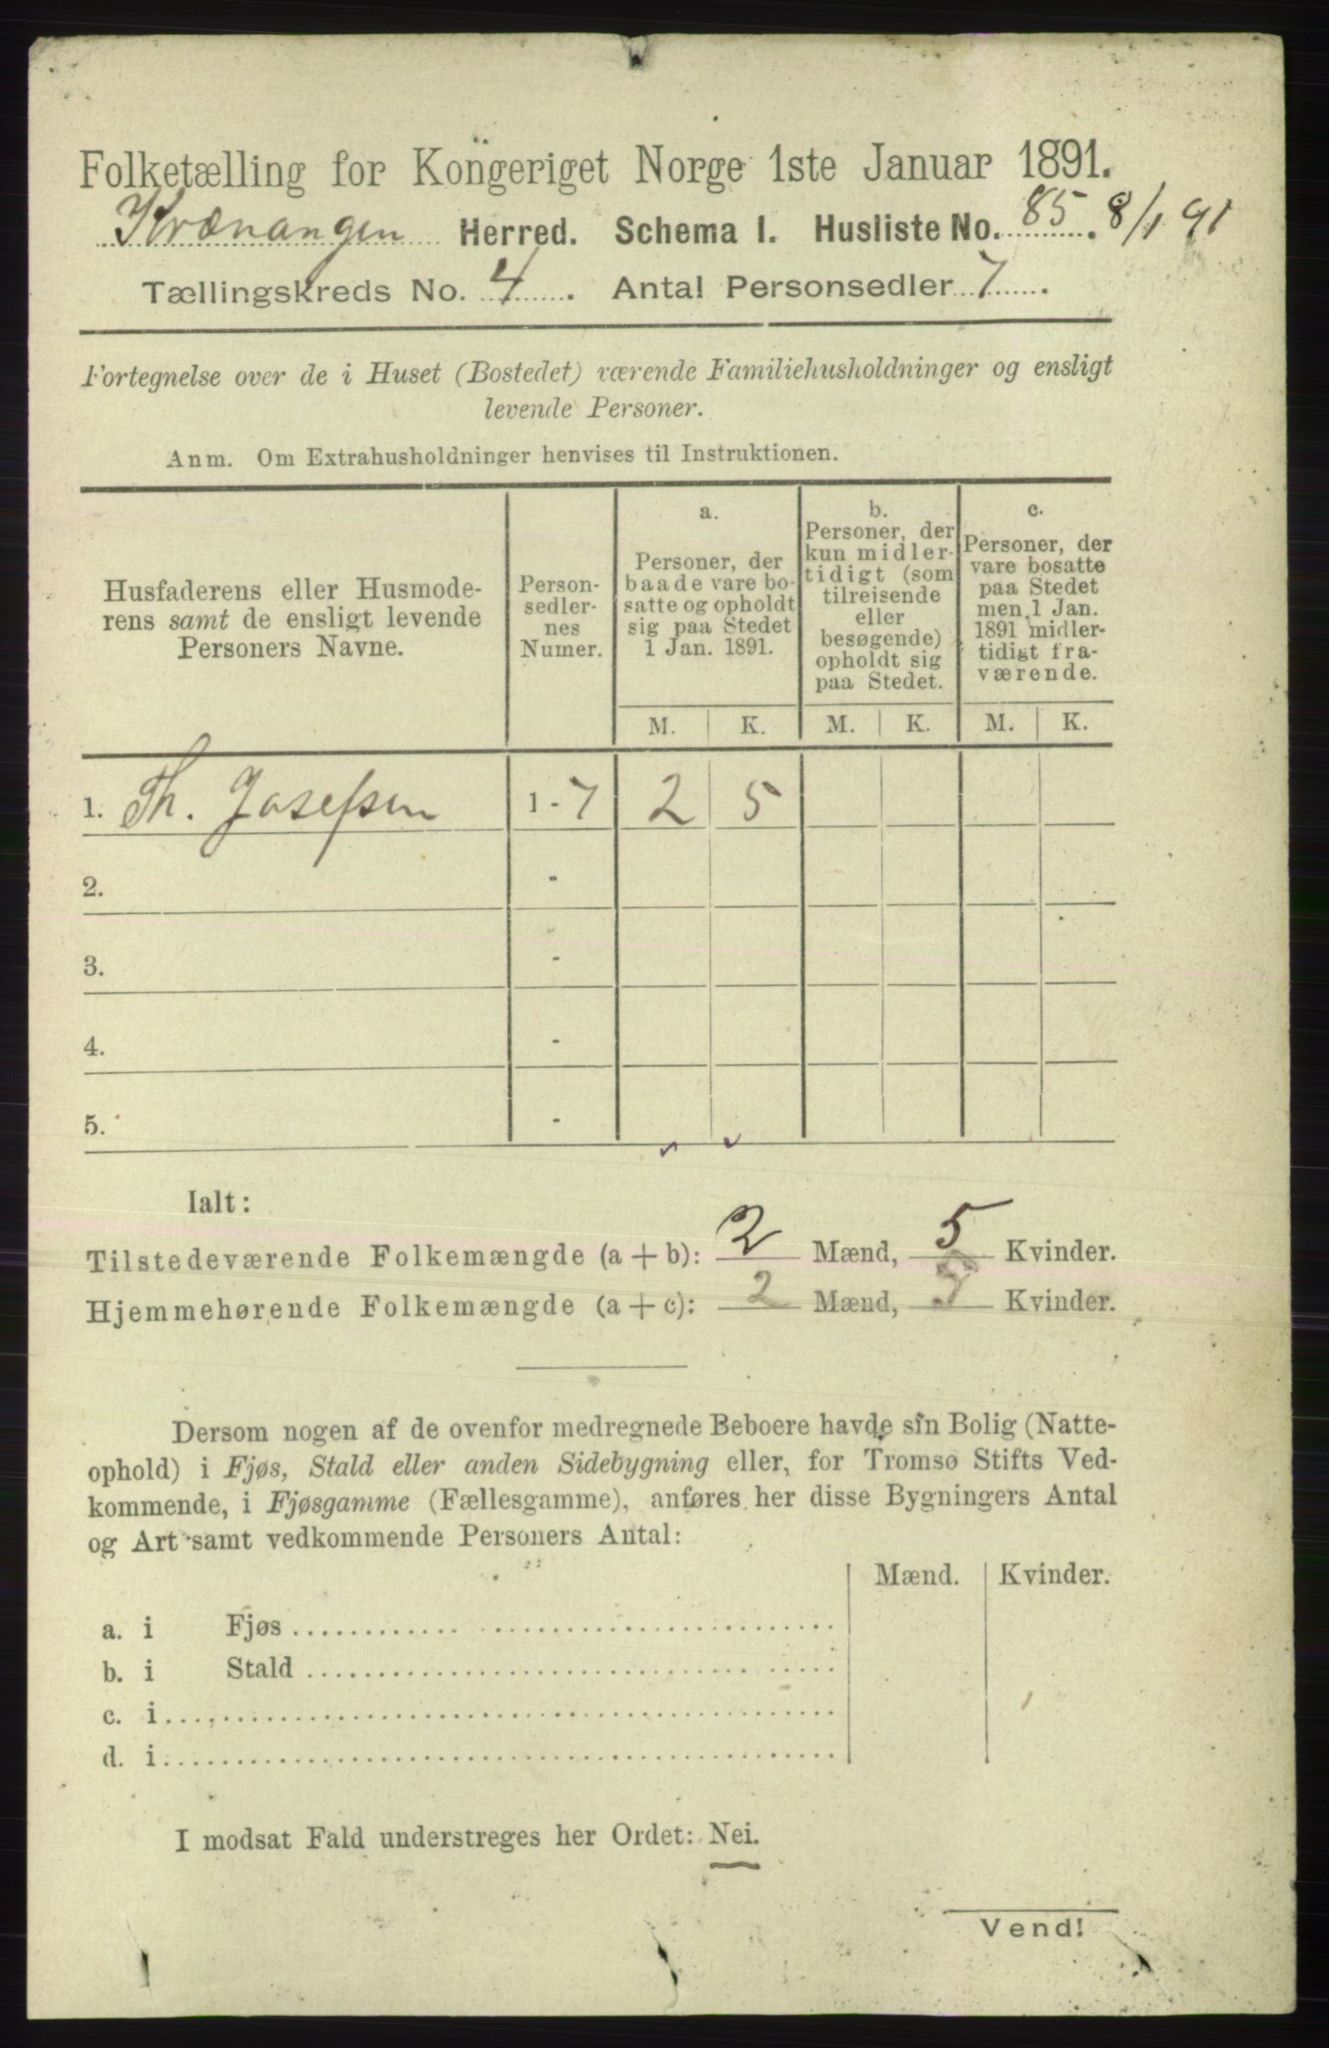 Folketælling for Kongeriget Norge 1ste Januar 1891.
Kvænangen Herred. Schema I. Husliste No. 85. 8/1 91
Tællingskreds No. 4. Antal Personsedler 7.
Fortegnelse over de i Huset (Bostedet) værende Familiehusholdninger og ensligt
levende Personer.
Anm. Om Extrahusholdninger henvises til Instruktionen.
Husfaderens eller Husmode-
rens samt de ensligt levende
Personers Navne.
Person-
sedler-
nes
Numer.
a.
Personer, der
baade vare bo-
satte og opholdt
sig paa Stedet
1 Jan. 1891.
b.
Personer, der
kun midler-
tidigt (som
tilreisende
eller
besøgende)
opholdt sig
paa Stedet.
c.
Personer, der
vare bosatte
paa Stedet
men 1 Jan.
1891 midler-
tidigt fra-
værende.
M. K. M. K. M. K.
1. Th. Josefsen 1 - 7 2 5
2. -
3. -
4. -
5. -
Ialt:
Tilstedeværende Folkemængde (a + b): 2 Mænd, 5 Kvinder.
Hjemmehørende Folkemængde (a + c): 2 Mænd, Kvinder.
Dersom nogen af de ovenfor medregnede Beboere havde sin Bolig (Natte-
ophold) i Fjøs, Stald eller anden Sidebygning eller, for Tromsø Stifts Ved-
kommende, i Fjøsgamme (Fællesgamme), anføres her disse Bygningers Antal
og Art samt vedkommende Personers Antal:
Mænd. Kvinder.
a. i Fjøs
b. i Stald
c. i
d. i
I modsat Fald understreges her Ordet: Nei.
Vend!